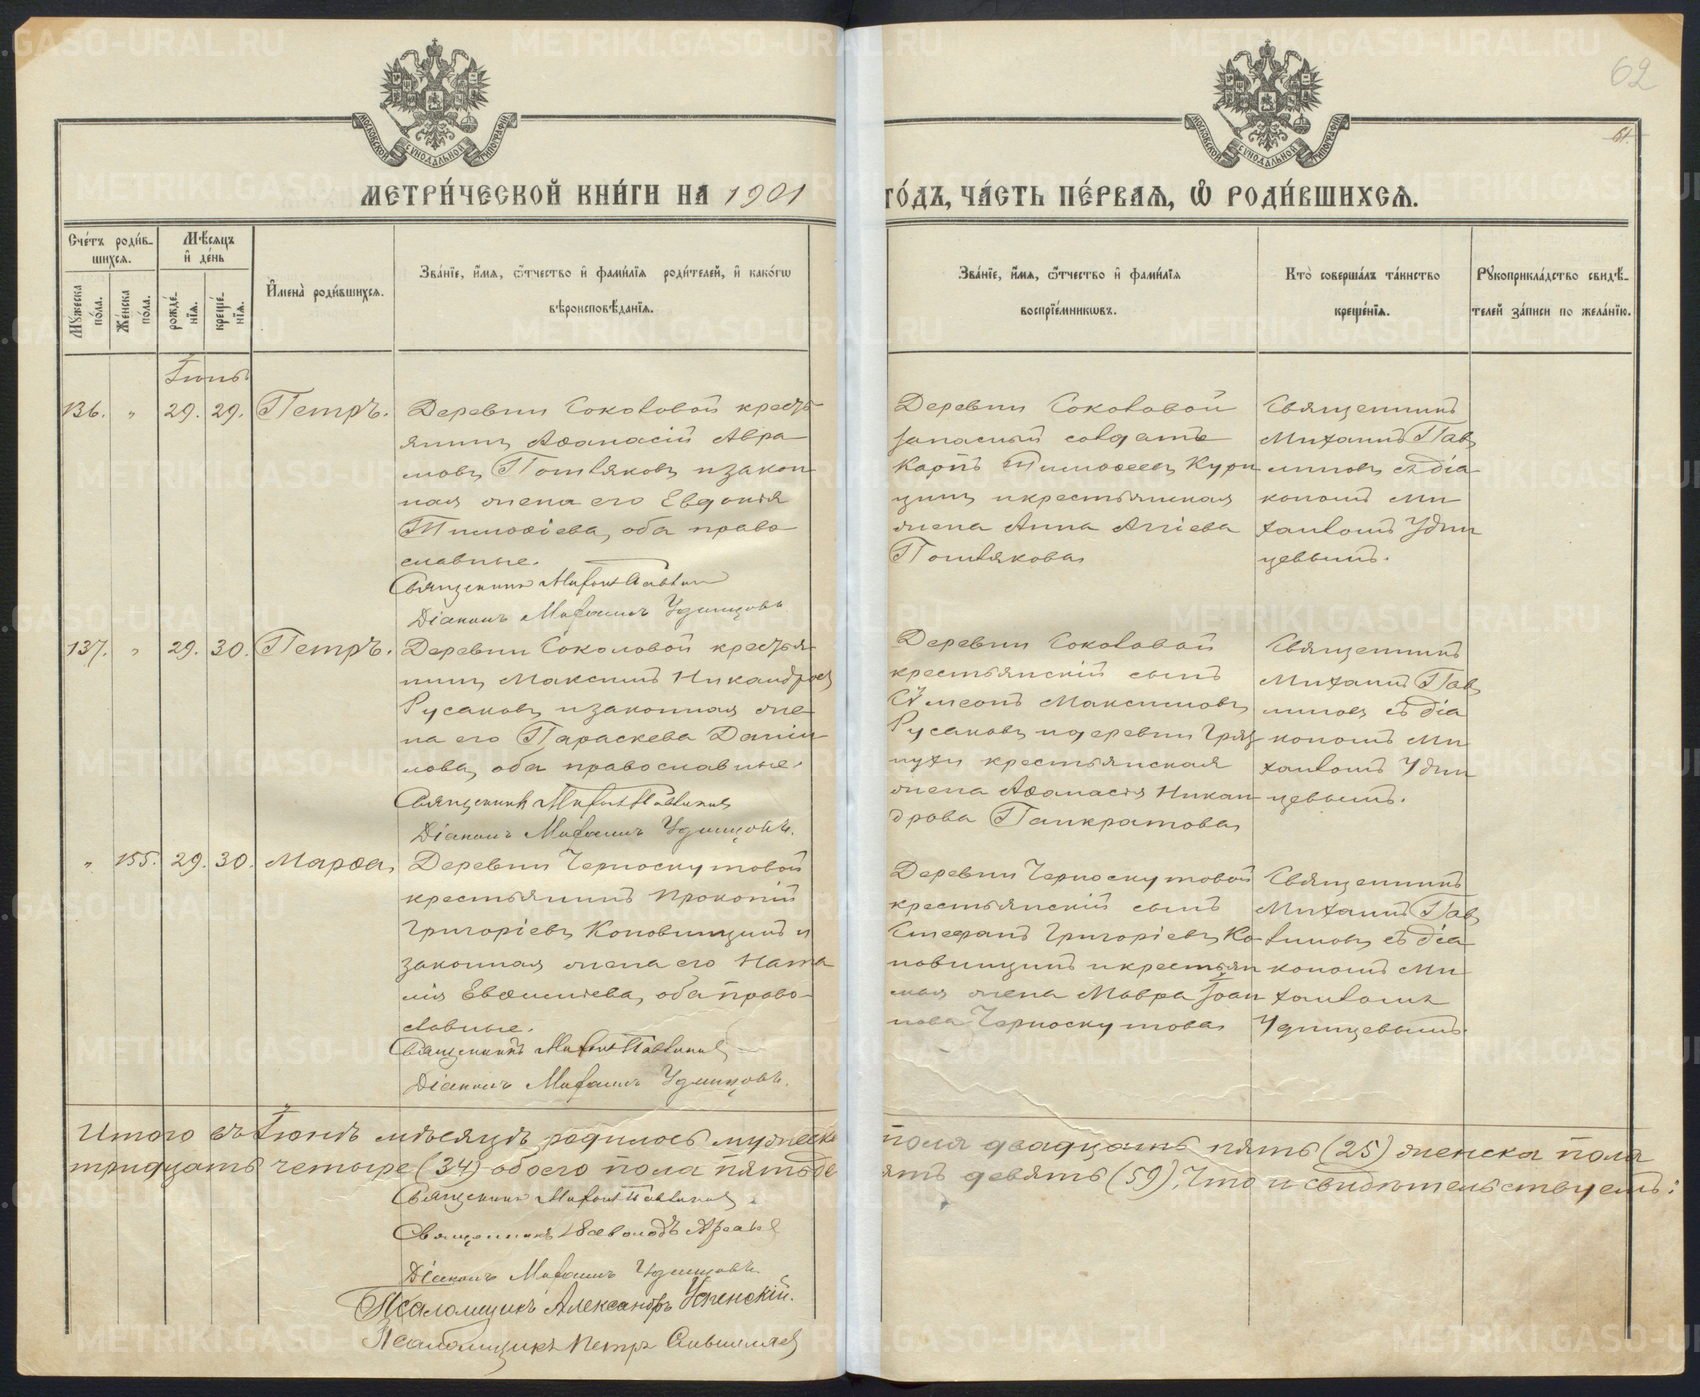 62
61.
МОСКОВСКОЙ СѴНОДАЛЬНОЙ ТИПОГРАФІИ
МОСКОВСКОЙ СѴНОДАЛЬНОЙ ТИПОГРАФІИ
МЕТРИ́ЧЕСКОЙ КНИ́ГИ НА 1901
ГО́ДЪ, ЧА́СТЬ ПЕ́РВАЯ, Ѽ РОДИ́ВШИХСЯ.
Сче́тъ роди́вшихся.
Му́жеска по́ла.
Же́нска по́ла.
Мѣ́сяцъ и де́нь
рожде́нїя.
креще́нїя.
Имена̀ роди́вшихся.
Зва́нїе, и́мя, ѻ҆́тчество и фами́лїя роди́телей, и како́гѡ
вѣроисповѣ́данїя.
Зва́нїе, и́мя, ѻ҆́тчество и фами́лїя
воспрїе́мникѡвъ.
Кто̀ соверша́лъ та́инство
креще́нїя.
Рꙋкоприкла́дство свидѣ́-
телей за́писи по жела́нїю.
Іюнь
136. „ 29. 29. Петръ.
Деревни Соколовой кресть-
янинъ Аѳанасій Авра-
мовъ Потляковъ и закон-
ная жена его Евдокія
Тимоѳіева, оба право-
славные.
Священникъ Михаилъ Павлинов
Діаконъ Михаилъ Удинцовъ.
Деревни Соколовой
запасный солдатъ
Карпъ Тимоѳеевъ Кури-
цинъ и крестьянская
жена Анна
Потлякова
Священникъ
Михаилъ Пав-
линовъ съ діа-
кономъ Ми-
хаиломъ Удин-
цевымъ.
137. „ 29. 30. Петръ.
Деревни Соколовой крестья-
нинъ Максимъ Никандров
Русаковъ и законная же-
на его Параскева Даніи-
лова, оба православные.
Священникъ Михаилъ Павлинов
Діаконъ Михаилъ Удинцовъ.
Деревни Соколовой
крестьянскій сынъ
Сѵмеонъ Максимовъ
Русаковъ и деревни Гряз-
нухи крестьянская
жена Аѳанасія Никан-
дрова Панкратова
Священникъ
Михаилъ Пав-
линовъ съ діа-
кономъ Ми-
хаиломъ Удин-
цевымъ.
„ 155. 29. 30. Марѳа,
Деревни Черноскутовой
крестьянинъ Прокопій
Григоріевъ Коновницинъ и
законная жена его Ната-
лія Евѳиміева, оба право-
славные.
Священникъ Михаилъ Павлинов
Діаконъ Михаилъ Удинцовъ.
Деревни Черноскутовой
крестьянскій сынъ
Стефанъ Григоріевъ Ко-
новницинъ и крестьян-
ская жена Мавра Іоан-
нова Черноскутова
Священникъ
Михаилъ Пав-
линовъ съ діа-
кономъ Ми-
хаиломъ
Удинцевымъ.
Итого въ Іюнѣ мѣсяцѣ родилось мужеска пола двадцать пять (25) женска пола
тридцать четыре (34) обоего пола пятьдесятъ девять (59). Что и свидѣтельствуемъ:
Священникъ Михаилъ Павлинов
Священникъ Всеволодъ
Діаконъ Михаилъ Удинцовъ.
Псаломщикъ Александръ Успенскій.
Псаломщикъ Петръ
METRIKI.GASO-URAL.RU